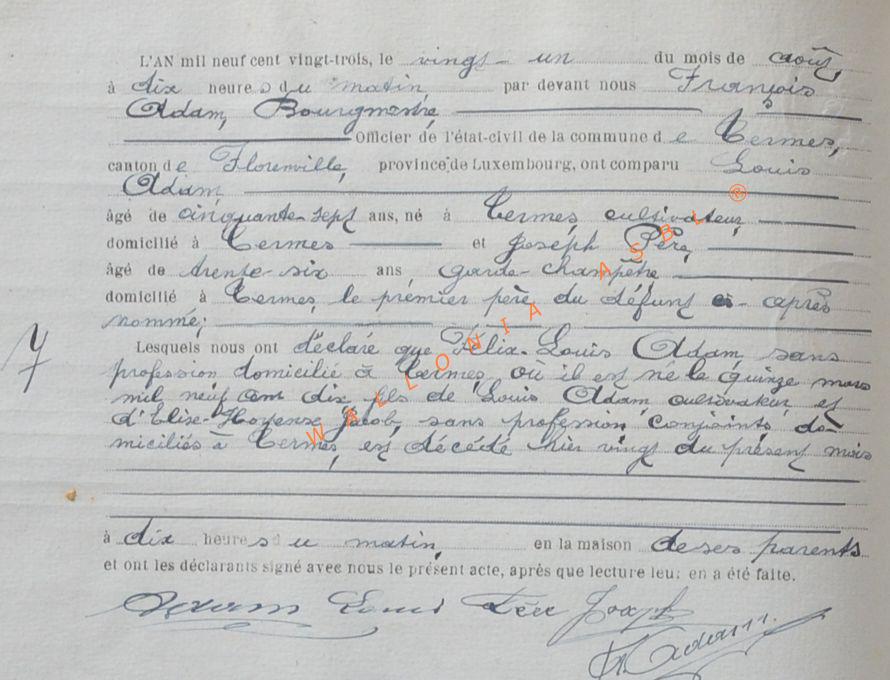 L'AN mil neuf cent vingt-trois, le vingt-un du mois de août,
à dix heures du matin, par devant nous François
Adam, Bourgmestre,
officier de l'état-civil de la commune de Termes,
canton de Florenville, province de Luxembourg, ont comparu Louis
Adam,
âgé de cinquante-sept ans, né à Termes, cultivateur,
domicilié à Termes et Joseph Père,
âgé de trente-six ans, garde-champêtre,
domicilié à Termes, le premier père du défunt ci-après
nommé;
7
Lesquels nous ont déclaré que Félix-Louis Adam, sans
profession domicilié à Termes, où il est né le quinze mars
mil neuf cent dix, fils de Louis Adam, cultivateur et
d'Elise Jacob, sans profession, conjoints, do-
miciliés à Termes, est décédé hier vingt du présent mois
à dix heures du matin, en la maison de ses parents
et ont les déclarants signé avec nous le présent acte, après que lecture leur en a été faite.
Adam Louis Père Joseph
F Adam
WALLONIA ASBL ®